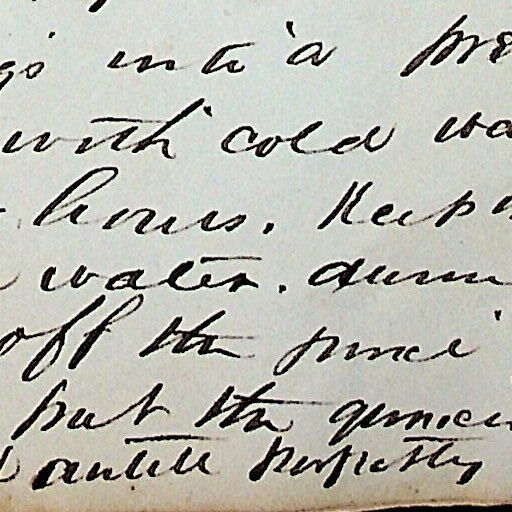 gs into a pre
with cold wa
hours. Keep
water. durin
off the juice
put the quince
untill perfectly